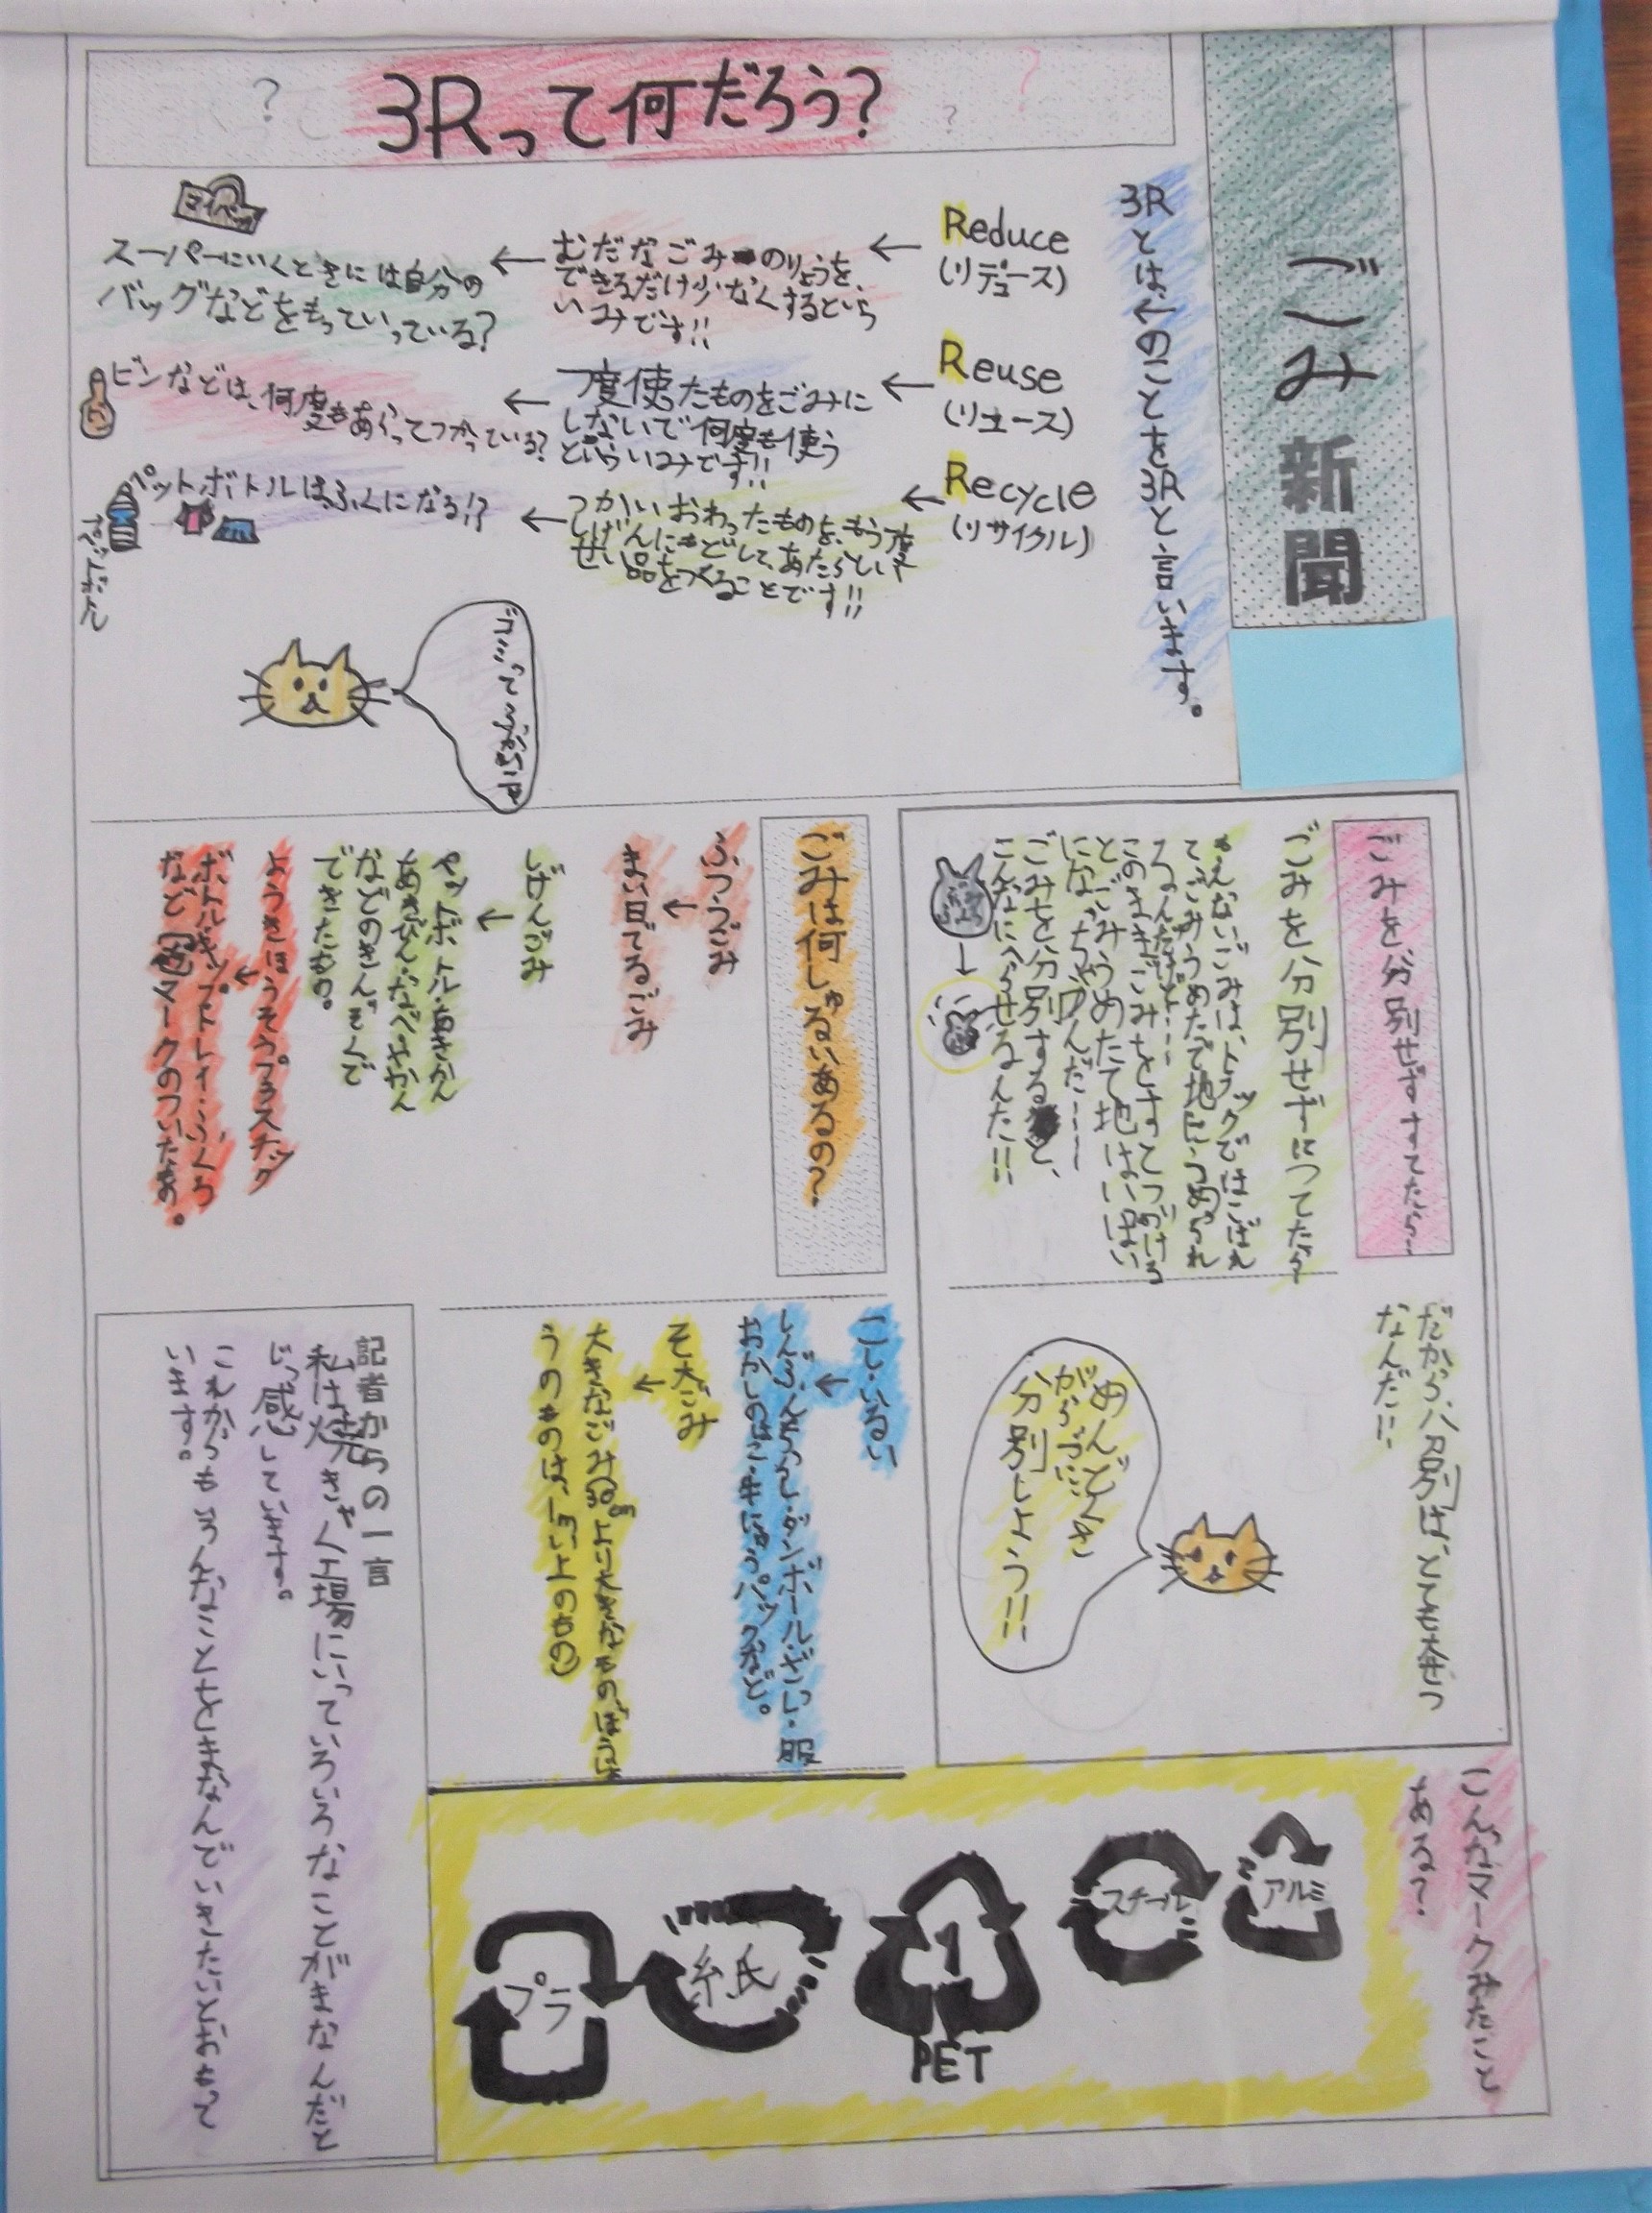 ごみ新聞
3Rって何だろう?
3Rとは←のことを3Rと言います。
Reduce
(リデュース)
←
むだなごみのりょうを、
できるだけ少なくするという
いみです!!
←
スーパーにいくときには自分の
バッグなどをもっていっている?
マイバッグ
Reuse
(リユース)
←
一度使ったものをごみに
しないで何度も使う
といういみです!!
←
ビンなどは、何度もあらってつかっている?
Recycle
(リサイクル)
←
つかいおわったものを、もう一度
しげんにもどして、あたらしい
せい品をつくることです!!
←
ペットボトルは、ふくになる!?
ペットボトル
ごみを分別せずすてたら…
ごみを分別せずにすてたら…
もえないごみは、トラックではこばれ
てごみうめたて地にうめられ
るんだけど…
このままごみをすてつづける
とごみうめたて地はいっぱい
になっちゃうんだ…
ごみを分別すると、
こんなにへらせるんだ!!
だから、分別は、とても大せつ
なんだ!!
めんどくさ
がらずに…
分別しよう!!
ごみは何しゅるいあるの?
ふつうごみ
↓
まい日でるごみ
しげんごみ
↓
ペットボトル・あきかん
あきびん・なべややかん
などのきんぞくで
できたもの。
ようきほうそうプラスチック
↓
ボトル・キャップ・トレイ・ふくろ
などマークのついたもの。
こし・いるい
↓
しんぶん・ちらし・ダンボール・ざっし・服
おかしのはこ・牛にゅうパックなど。
そ大ごみ
↓
大きなごみ(30cmより大きなものぼうじょ
うのものは、1mい上のもの)
こんなマークみたこと
ある?
アルミ
スチール
1
PET
紙
プラ
記者からの一言
私は焼きゃく工場にいっていろいろなことがまなんだと
じっ感しています。
これからもいろんなことをまなんでいきたいとおもって
います。